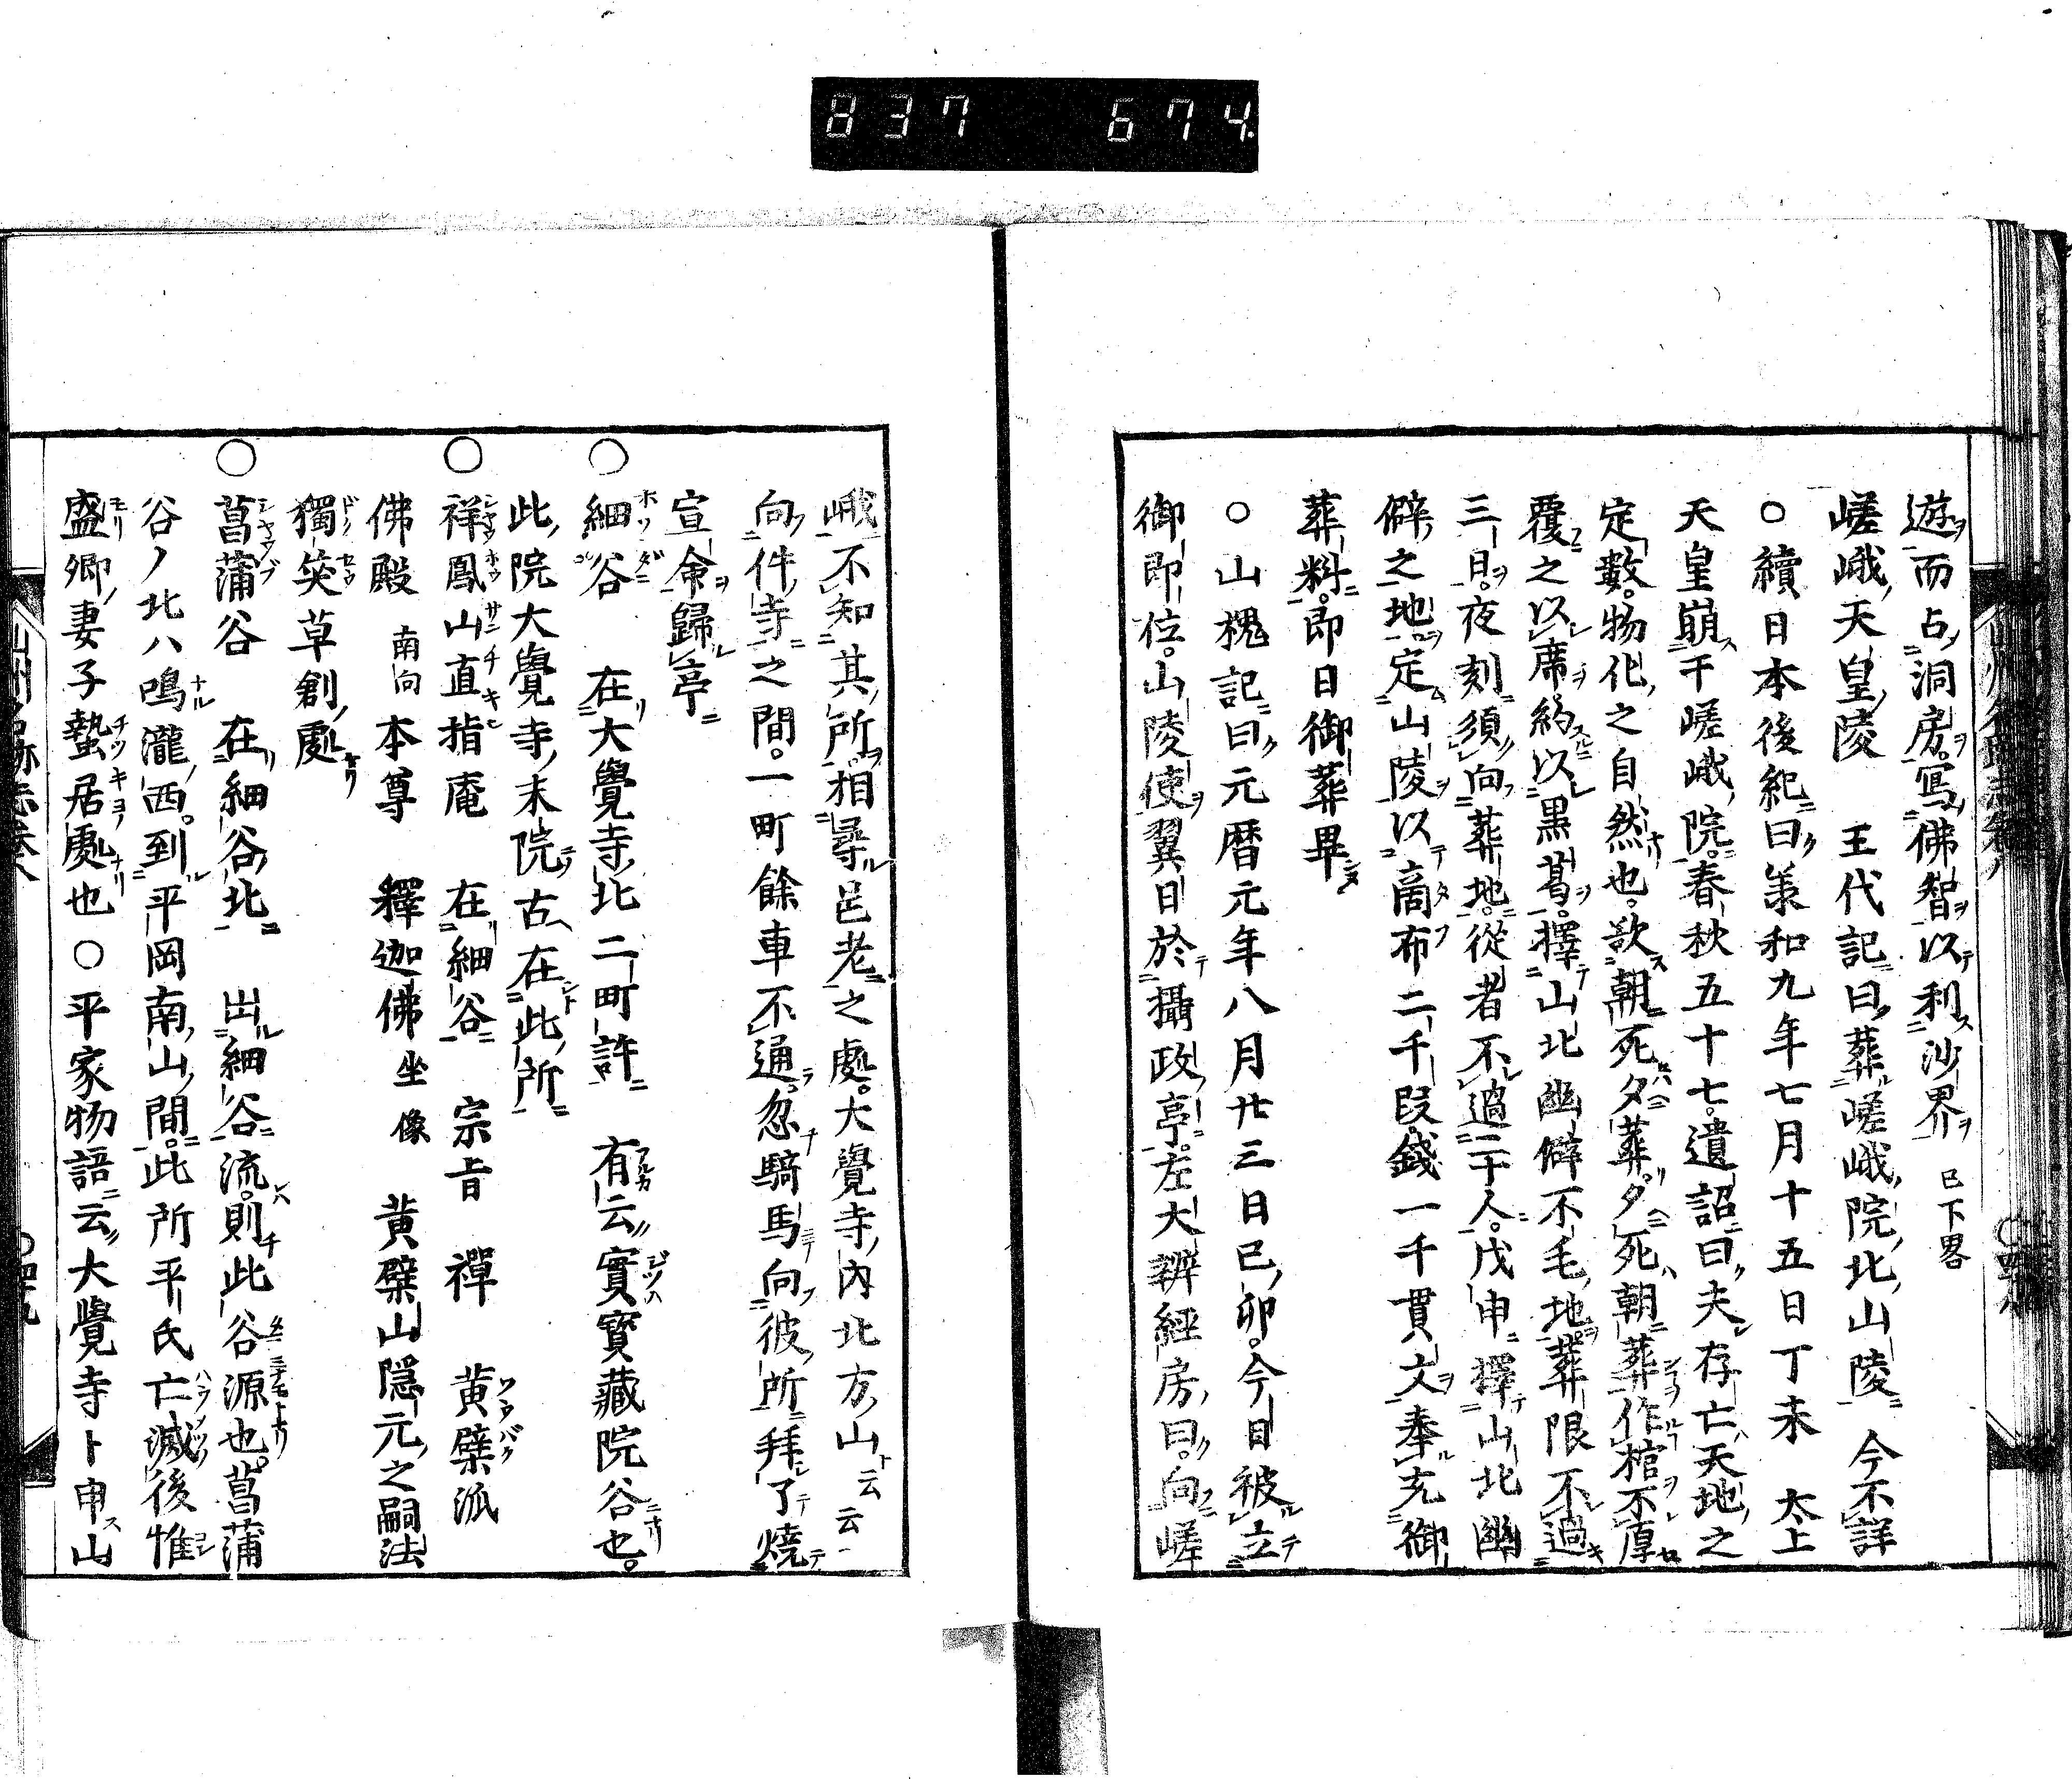 837 674
遊而占洞房。寫佛智以利沙界 已下畧
嵯峨天皇陵 王代記曰葬嵯峨院北山陵 今不詳
○續日本後紀曰羕和九年七月十五日丁未 太上
天皇崩于嵯峨院。春秋五十七。遺詔曰夫存亡天地之
定數。物化之自然也。欲朝死夕葬。夕死朝葬作棺不厚
覆之以席約以黒葛。擇山北幽僻不毛地。葬限不過
三日。夜刻須向葬地。從者不過二十人。戊申擇山北幽
僻之地。定山陵以商布二千段。錢一千貫文奉充御
葬料。即日御葬畢
○山槐記曰元暦元年八月廿三日己卯。今日被立
御即位。山陵使翼日於攝政亭。左大辨経房曰。向嵯
峨不知其所相尋邑老之處。大覺寺内北方山云云
向件寺之間。一町餘車不通。忽騎馬向彼所拜了燒
宣命歸亭
○細谷 在大覺寺北二町許 有云實寶藏院谷也。
此院大覺寺末院古在此所
○祥鳳山直指庵 在細谷 宗旨 禪 黄檗派
佛殿 南向 本尊 釋迦佛 坐像 黄檗山隠元之嗣法
獨笑草創處
○菖蒲谷 在細谷北 出細谷流。則此谷源也。菖蒲
谷ノ北八鳴瀧西。到平岡南山間。此所平氏亡滅後惟
盛卿妻子蟄居處也○平家物語云大覺寺ト申ス山